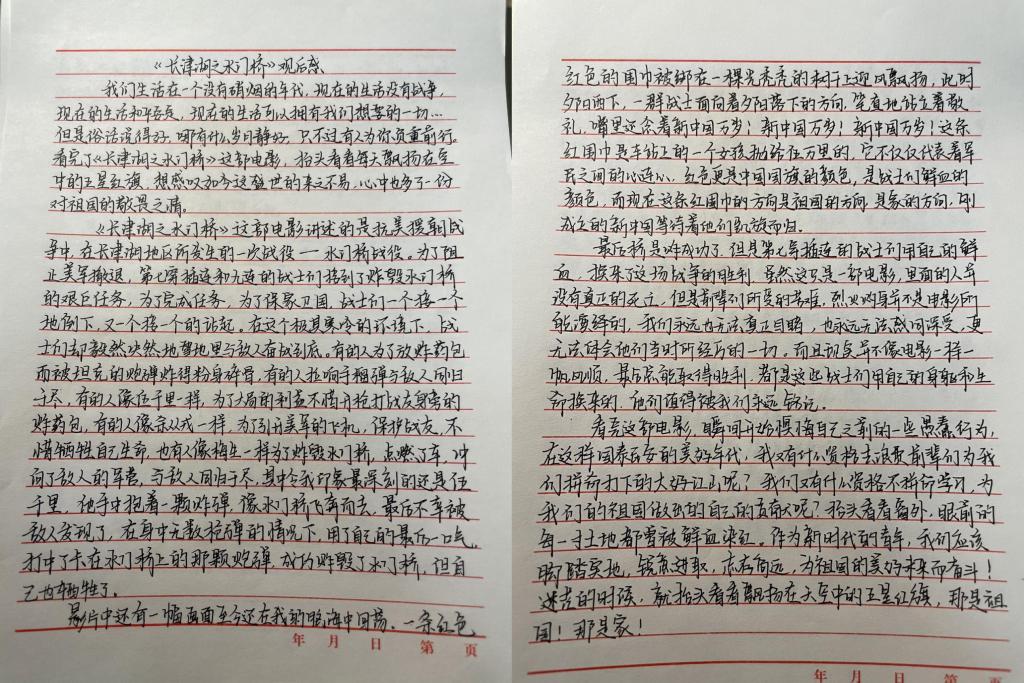 《长津湖之水门桥》观后感
我们生活在一个没有硝烟的年代,现在的生活没有战争,
现在的生活和平安定,现在的生活可以拥有我们想要的一切…
但是俗话说得好,哪有什么岁月静好,只不过有人为你负重前行。
看完了《长津湖之水门桥》这部电影,抬头看看每天飘扬在空
中的五星红旗,想感叹如今这盛世的来之不易,心中也多了一份
对祖国的敬畏之情。
《长津湖之水门桥》这部电影讲述的是抗美援朝战
争中,在长津湖地区所发生的一次战役——水门桥战役。为了阻
止美军撤退,第七穿插连和九连的战士们接到了炸毁水门桥
的艰巨任务,为了完成任务,为了保家卫国,战士们一个接一个
地倒下,又一个接一个的站起。在这个极其寒冷的环境下,战
士们却毅然决然地誓地里与敌人奋战到底。有的人为了放炸药包
而被坦克的炮弹炸得粉身碎骨,有的人拉响手榴弹与敌人同归
于尽,有的人像伍千里一样,为了大局的利益不惜开枪打战友身旁的
炸药包,有的人像余从戎一样,为了引开美军的飞机,保护战友,不
惜牺牲自己生命,也有人像梅生一样为了炸毁水门桥,点燃了车,冲
向了敌人的军营,与敌人同归于尽,其中令我印象最深刻的还是伍
千里,他手中抱着一颗炸弹,像水门桥飞奔而去,最后不幸被
敌人发现了,在身中无数枪弹的情况下,用了自己的最后一口气,
打中了卡在水门桥上的那颗炮弹,成功炸毁了水门桥,但自
己也牺牲了。
影片中还有一幅画面至今还在我的脑海中回荡,一条红色
年 月 日 第 页
红色的围巾被绑在一棵光秃秃的树干上迎风飘扬,此时
夕阳西下,一群战士面向着夕阳落下的方向,笔直地站立着敬
礼,嘴里还念着新中国万岁!新中国万岁!新中国万岁!这条
红围巾是车站上的一个女孩抛给伍万里的,它不仅仅代表着军
民之间的心连心,红色更是中国国旗的颜色,是战士们鲜血的
颜色,而现在这条红围巾的方向是祖国的方向,是家的方向,刚
成立的新中国等待着他们凯旋而归。
最后桥是炸成功了,但是第七穿插连的战士们用自己的鲜
血,换来了这场战争的胜利,虽然这只是一部电影,里面的人并
没有真正的死亡,但是前辈们所受的苦难,烈火的身并不是电影所
能演绎的,我们永远也无法真正目睹,也永远无法感同深受,更
无法体会他们当时所经历的一切,而且现实并不像电影一样一
帆风顺,最后总能取得胜利,都是这些战士们用自己的身躯和生
命换来的,他们值得被我们永远铭记。
看完这部电影,瞬间开始懊悔自己之前的一些愚蠢行为,
在这样国泰民安的美好年代,我又有什么资格去浪费前辈们为我
们拼命打下的大好江山呢?我们又有什么资格不拼命学习,为
我们的祖国做出自己的贡献呢?抬头看看窗外,眼前的
每一寸土地都曾被鲜血染红。作为新时代的青年,我们应该
脚踏实地,锐意进取,志存高远,为祖国的美好未来而奋斗!
迷茫的时候,就抬头看看飘扬在天空中的五星红旗,那是祖
国!那是家!
年 月 日 第 页